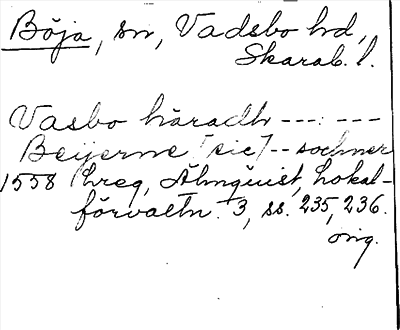 Böja, sn, Vadsbo hd,
Skarab. l.
Vasbo häradh ---:---
Beijerne [sic] -- sochner
1558 hreg, Almquist, Lokal-
förvaltn. 3, ss. 235, 236.
orig.